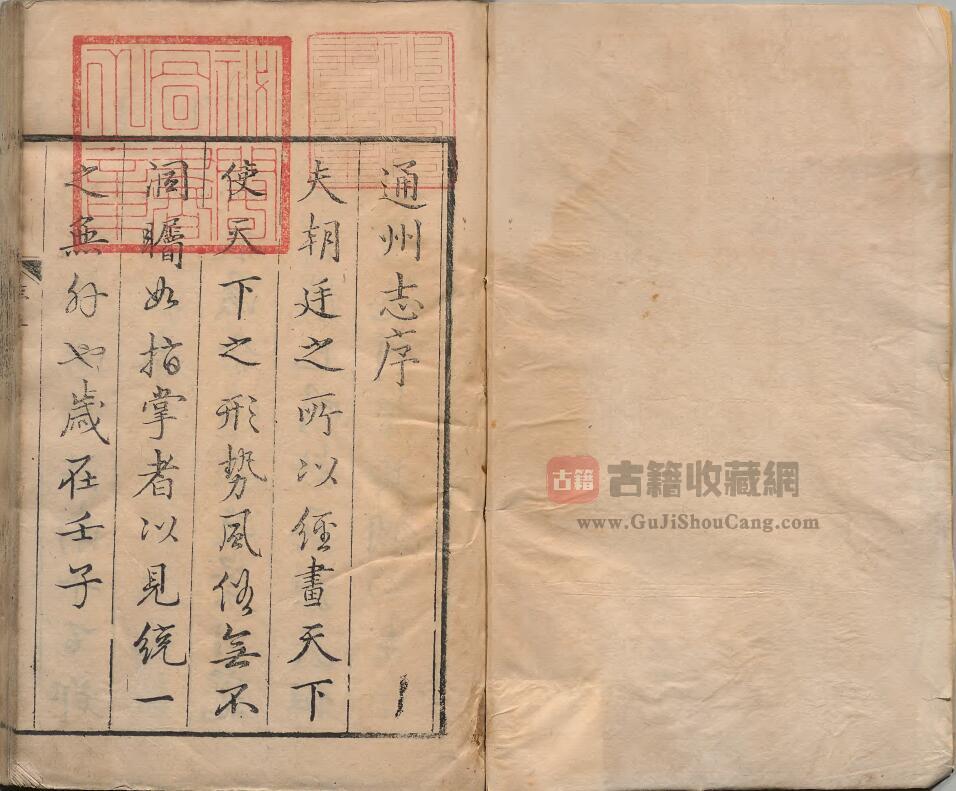 通州志序
夫朝廷之所以經畫天下
使天下之形勢風俗無不
洞矚如指掌者以見統一
之無外也歲在壬子
古籍
古籍收藏網
www.GuJiShouCang.com